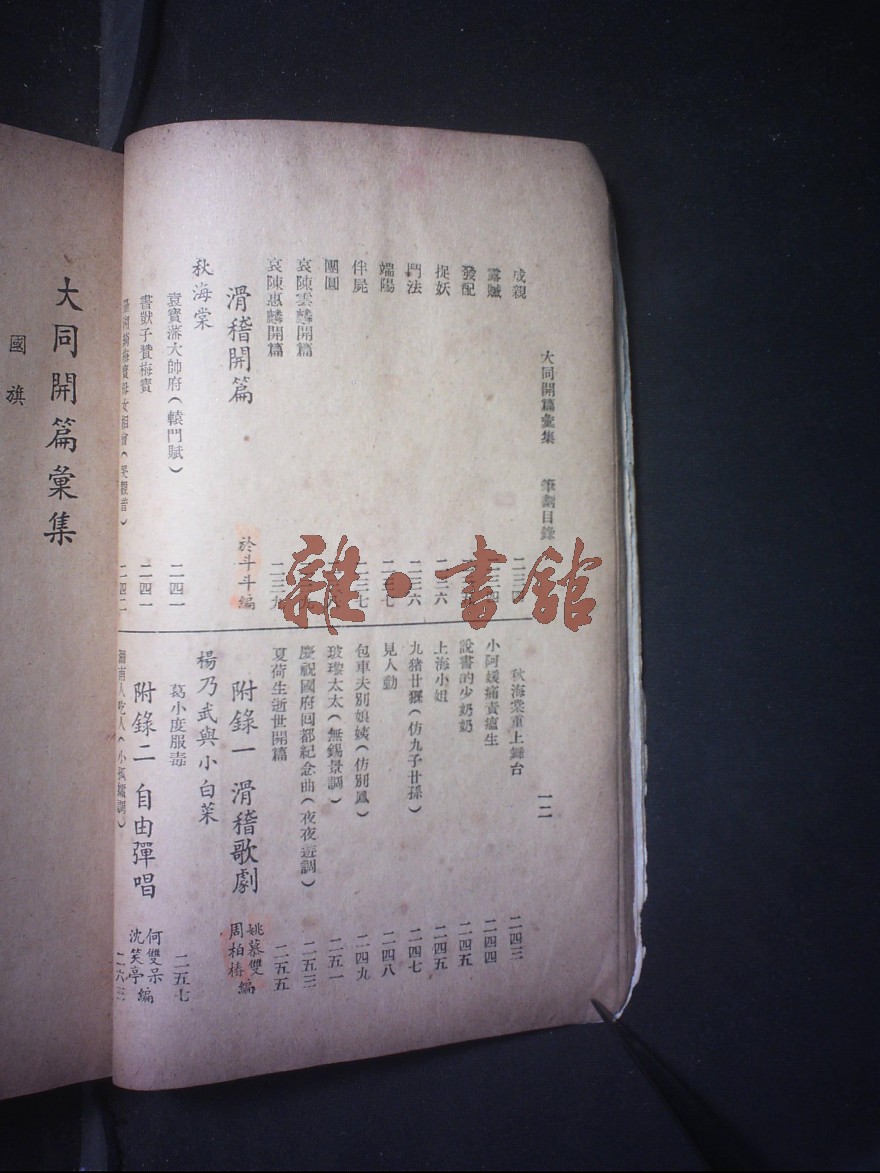 大同開篇彙集　筆劃目錄　一二
成親　二三四
露贓　二三四
發配
捉妖　二三六
鬥法　二三六
端陽　二三七
伴屍　二三七
團圓
哀陳雲麟開篇
哀陳惠麟開篇　二三九
滑稽開篇　於斗斗編
秋海棠
袁寶藩大帥府（轅門賦）　二四一
書獃子贊梅寶　二四一
二四二
秋海棠重上舞台　二四三
小阿媛痛責瘟生　二四四
說書的少奶奶　二四五
上海小姐　二四五
九猪廿玀（仿九子廿孫）　二四七
見人勸　二四八
包車夫別娘姨（仿別鳳）　二四九
玻璨太太（無錫景調）　二五一
慶祝國府回都紀念曲（夜夜遊調）　二五三
夏荷生逝世開篇　二五五
附錄一　滑稽歌劇　姚慕雙　周柏椿　編
楊乃武與小白菜
葛小度服毒　二五七
附錄二　自由彈唱　何雙呆　沈笑亭　編
二六三
大同開篇彙集
國旗
雜·書館